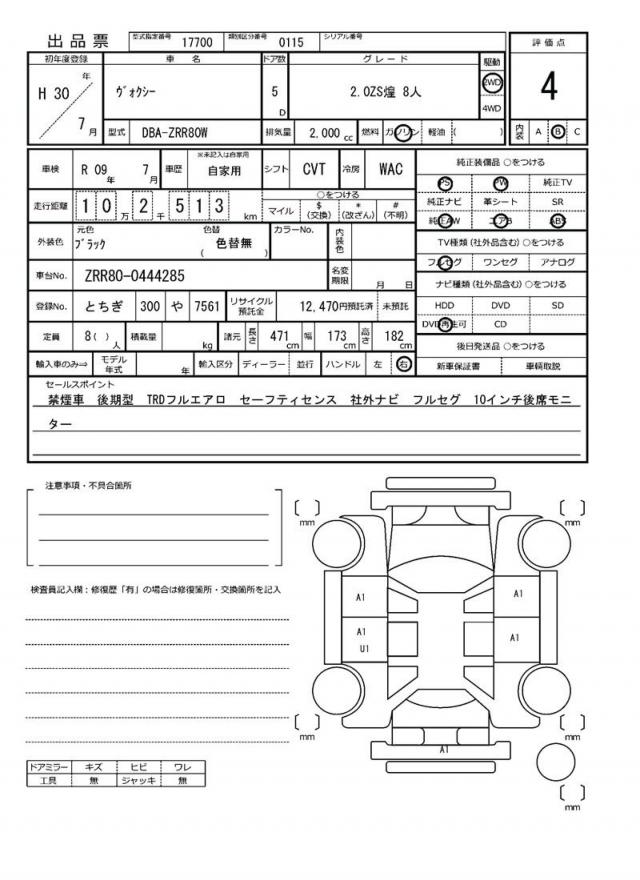 出品票 型式指定番号 17700 類別区分番号 0115 シリアル番号
評価点
4
内装 A B C
初年度登録 車名 ドア数 グレード 駆動
H 30 年 7 月 ヴォクシー 5 D 2.0ZS煌 8人 2WD 4WD
型式 DBA-ZRR80W 排気量 2,000 cc 燃料 ガソリン 軽油 ( )
車検 R 09 年 7 月 車歴 ※未記入は自家用 自家用 シフト CVT 冷房 WAC
走行距離 1 0 万 2 千 5 1 3 km ○をつける
マイル $ (交換) * (改ざん) # (不明)
外装色 元色 ブラック 色替 ( 色替無 ) カラーNo. 内装色
車台No. ZRR80-0444285 名変期限 月 日
登録No. とちぎ 300 や 7561 リサイクル預託金 12,470円預託済 未預託
定員 8( ) 人 積載量 kg 諸元 長さ 471 cm 幅 173 cm 高さ 182 cm
輸入車のみ⇒ モデル年式 年 輸入区分 ディーラー 並行 ハンドル 左 右
純正装備品 ○をつける
PS PW 純正TV
純正ナビ 革シート SR
純正AW エアB ABS
TV種類(社外品含む)○をつける
フルセグ ワンセグ アナログ
ナビ種類(社外品含む)○をつける
HDD DVD SD
DVD再生可 CD
後日発送品 ○をつける
新車保証書 車輌取説
セールスポイント
禁煙車 後期型 TRDフルエアロ セーフティセンス 社外ナビ フルセグ 10インチ後席モニ
ター
注意事項・不具合箇所
検査員記入欄:修復歴「有」の場合は修復箇所・交換箇所を記入
ドアミラー キズ ヒビ ワレ
工具 無 ジャッキ 無
[ ] mm
[ ] mm
A1
A1
A1
U1
A1
[ ] mm
[ ] mm
A1
[ ] mm